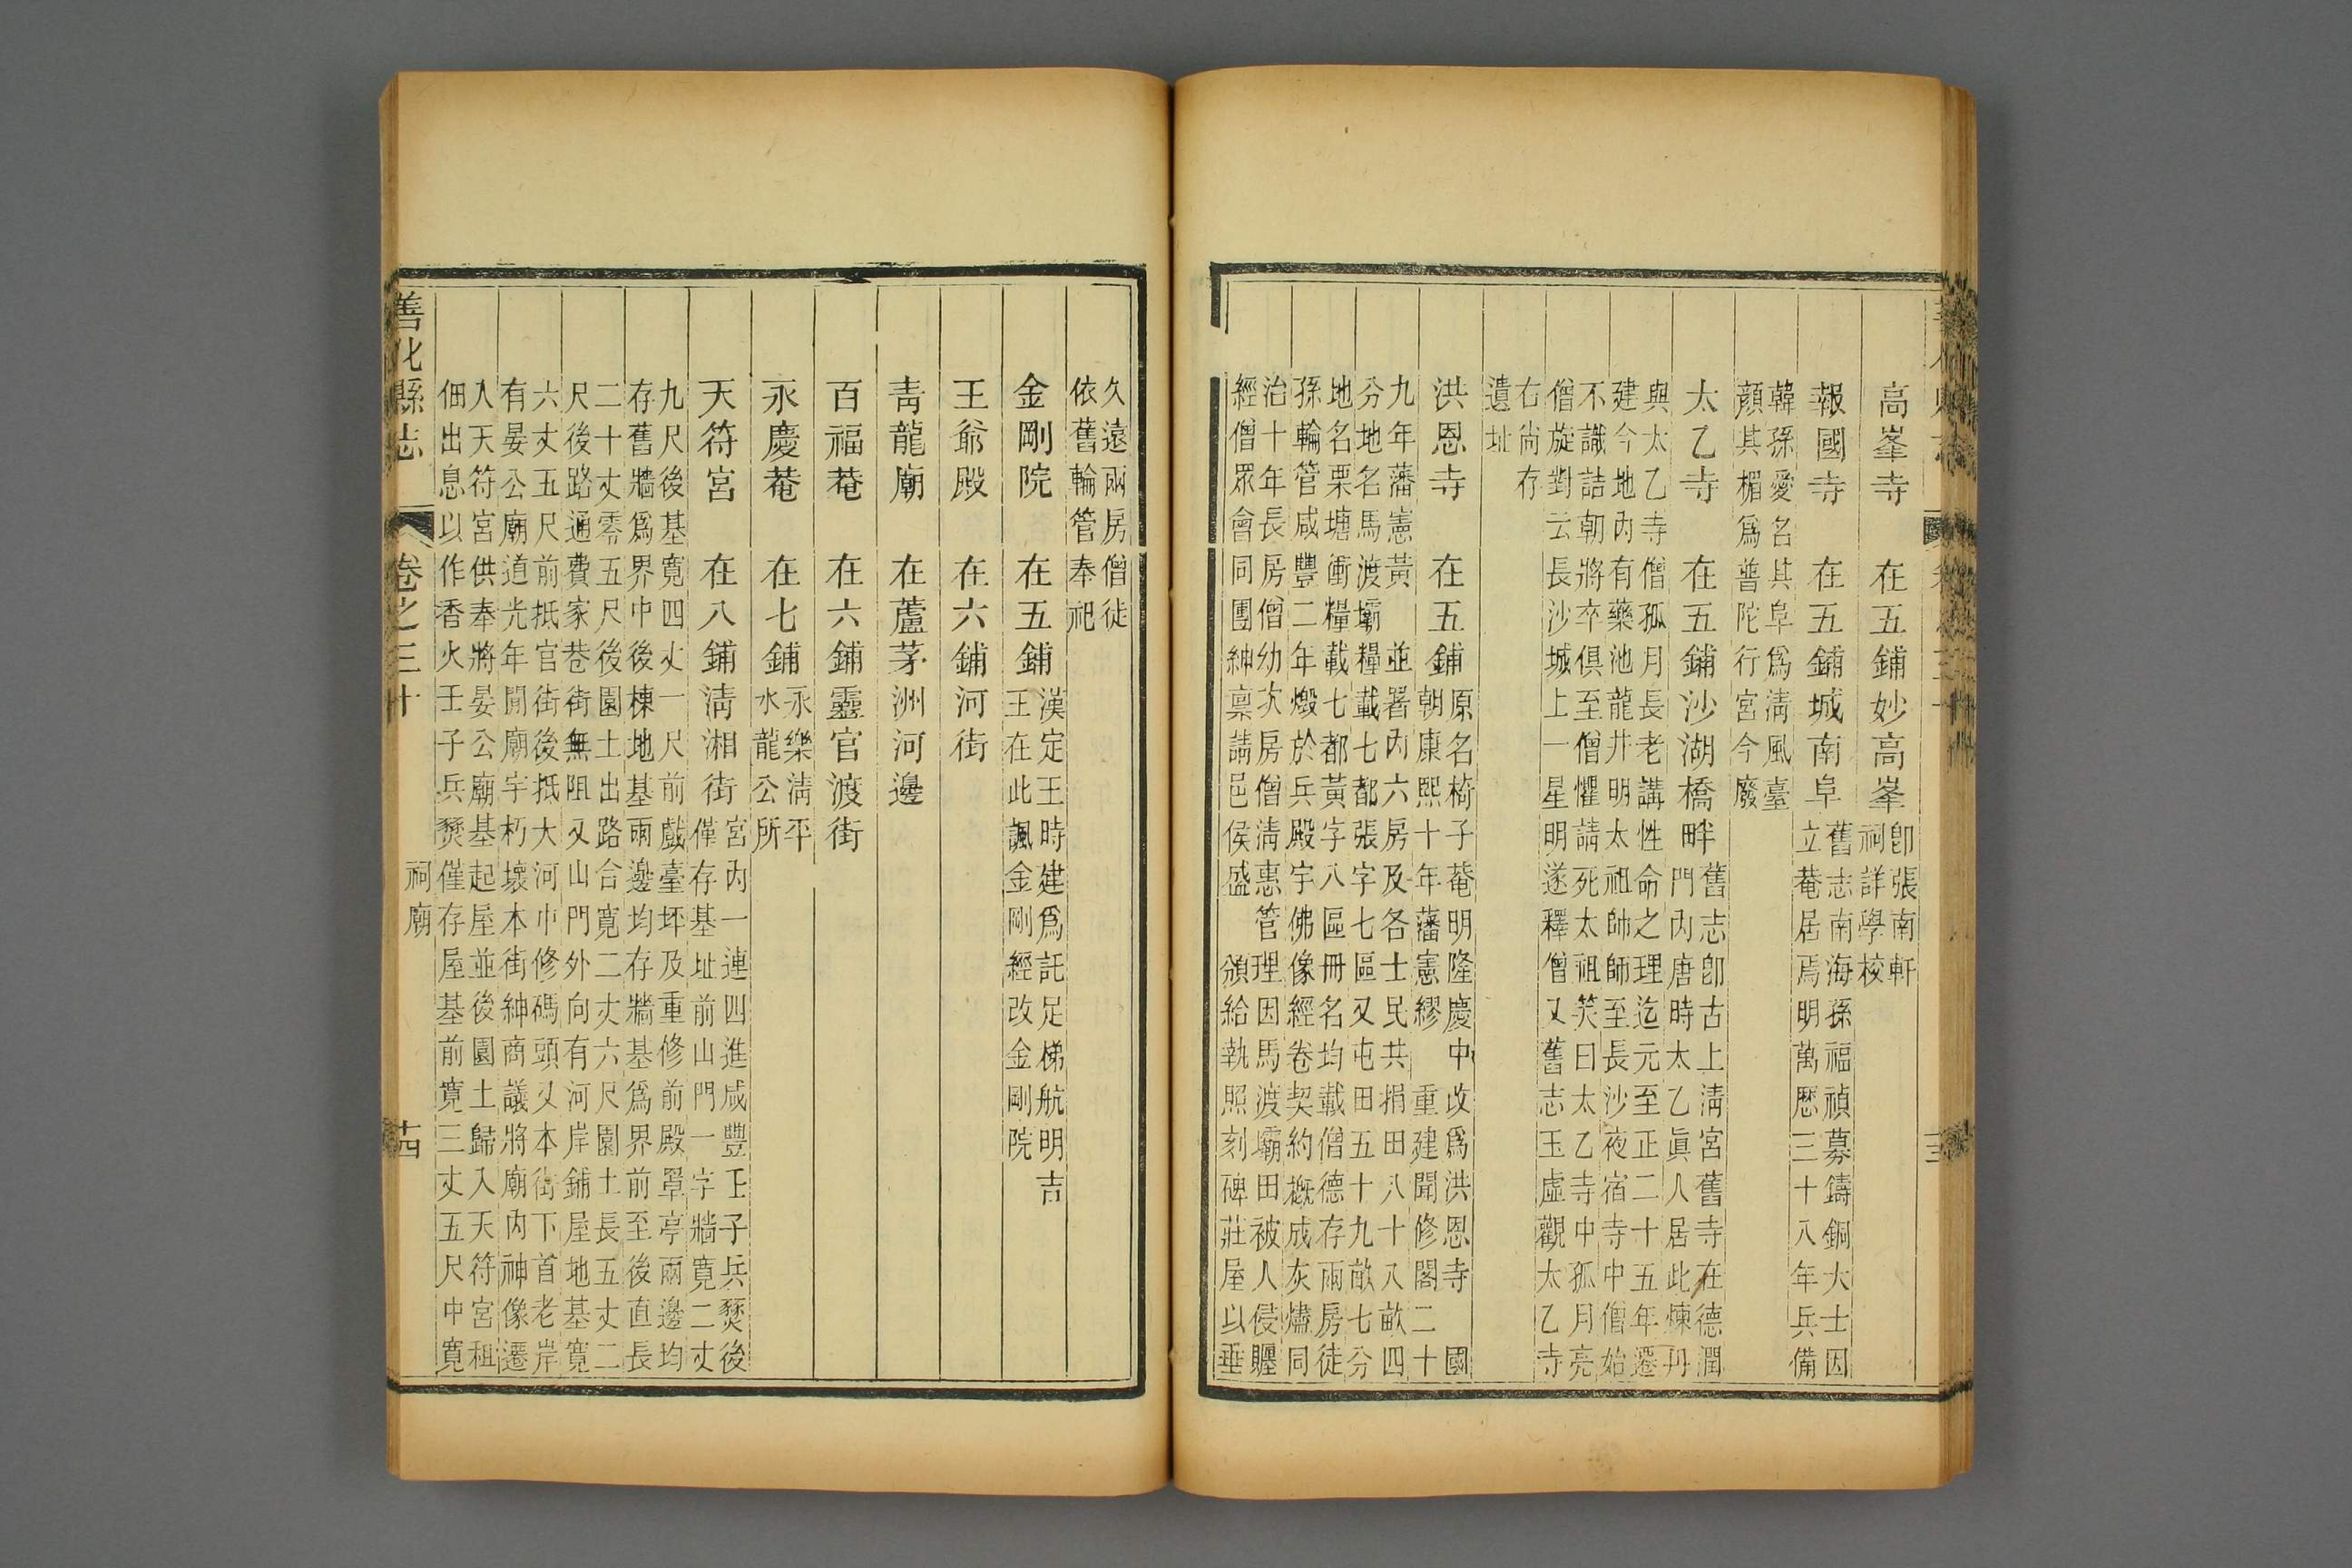 高峯寺　在五鋪妙高峯
卽張南軒
祠詳學校
報國寺　在五鋪城南阜
舊志南海孫福禎募鑄銅大士因
立菴居焉明萬歷三十八年兵備
韓孫愛名其阜爲淸風臺
顔其楣爲普陀行宮今廢
太乙寺　在五鋪沙湖橋畔
舊志卽古上淸宮舊寺在德潤
門內唐時太乙眞人居此煉丹
與太乙寺僧孤月長老講性命之理迄元至正二十五年遷
建今地內有藥池龍井明太祖師師至長沙夜宿寺中僧始
不識詰朝將卒俱至僧懼請死太祖笑曰太乙寺中孤月亮
僧旋對云長沙城上一星明遂釋僧又舊志玉虛觀太乙寺
右尚存
遺址
洪恩寺　在五鋪
原名椅子菴明隆慶中改爲洪恩寺　國
朝康熙十年藩憲繆　重建聞修閣二十
九年藩憲黃　並署內六房及各士民共捐田八十八畝四
分地名馬渡壩糧載七都張字七區又屯田五十九畝七分
地名栗塘衝糧載七都黃字八區冊名均載僧德存兩房徒
孫輪管咸豐二年燬於兵殿宇佛像經卷契約概成灰燼同
治十年長房僧幼次房僧淸惠管理因馬渡壩田被人侵
經僧眾會同團紳禀請邑侯盛　頒給執照刻碑莊屋以垂
久遠兩房僧徒
依舊輪管奉祀
金剛院　在五鋪
漢定王時建爲託足梯航明吉
王在此諷金剛經改金剛院
王爺殿　在六鋪河街
靑龍廟　在蘆茅洲河邊
百福菴　在六鋪靈官渡街
永慶菴　在七鋪
永樂淸平
水龍公所
天符宮　在八鋪淸湘街
宮內一連四進咸豐壬子兵燹後
僅存基址前山門一字牆寬二丈
九尺後基寬四丈一尺前戲臺坪及重修前殿罩亭兩邊均
存舊牆爲界中後棟地基兩邊均存牆基爲界前至後直長
二十丈零五尺後園土出路合寬二丈六尺園土長五丈二
尺後路通費家巷街無阻又山門外向有河岸鋪屋地基寬
六丈五尺前抵官街後抵大河巾修碼頭又本街下首老岸
有晏公廟道光年間廟宇朽壞本街紳商議將廟內神像遷
入天符宮供奉將晏公廟基起屋並後園土歸入天符宮租
佃出息以作香火壬子兵燹僅存屋基前寬三丈五尺中寬
善化縣志　卷之三十　祠廟　十四